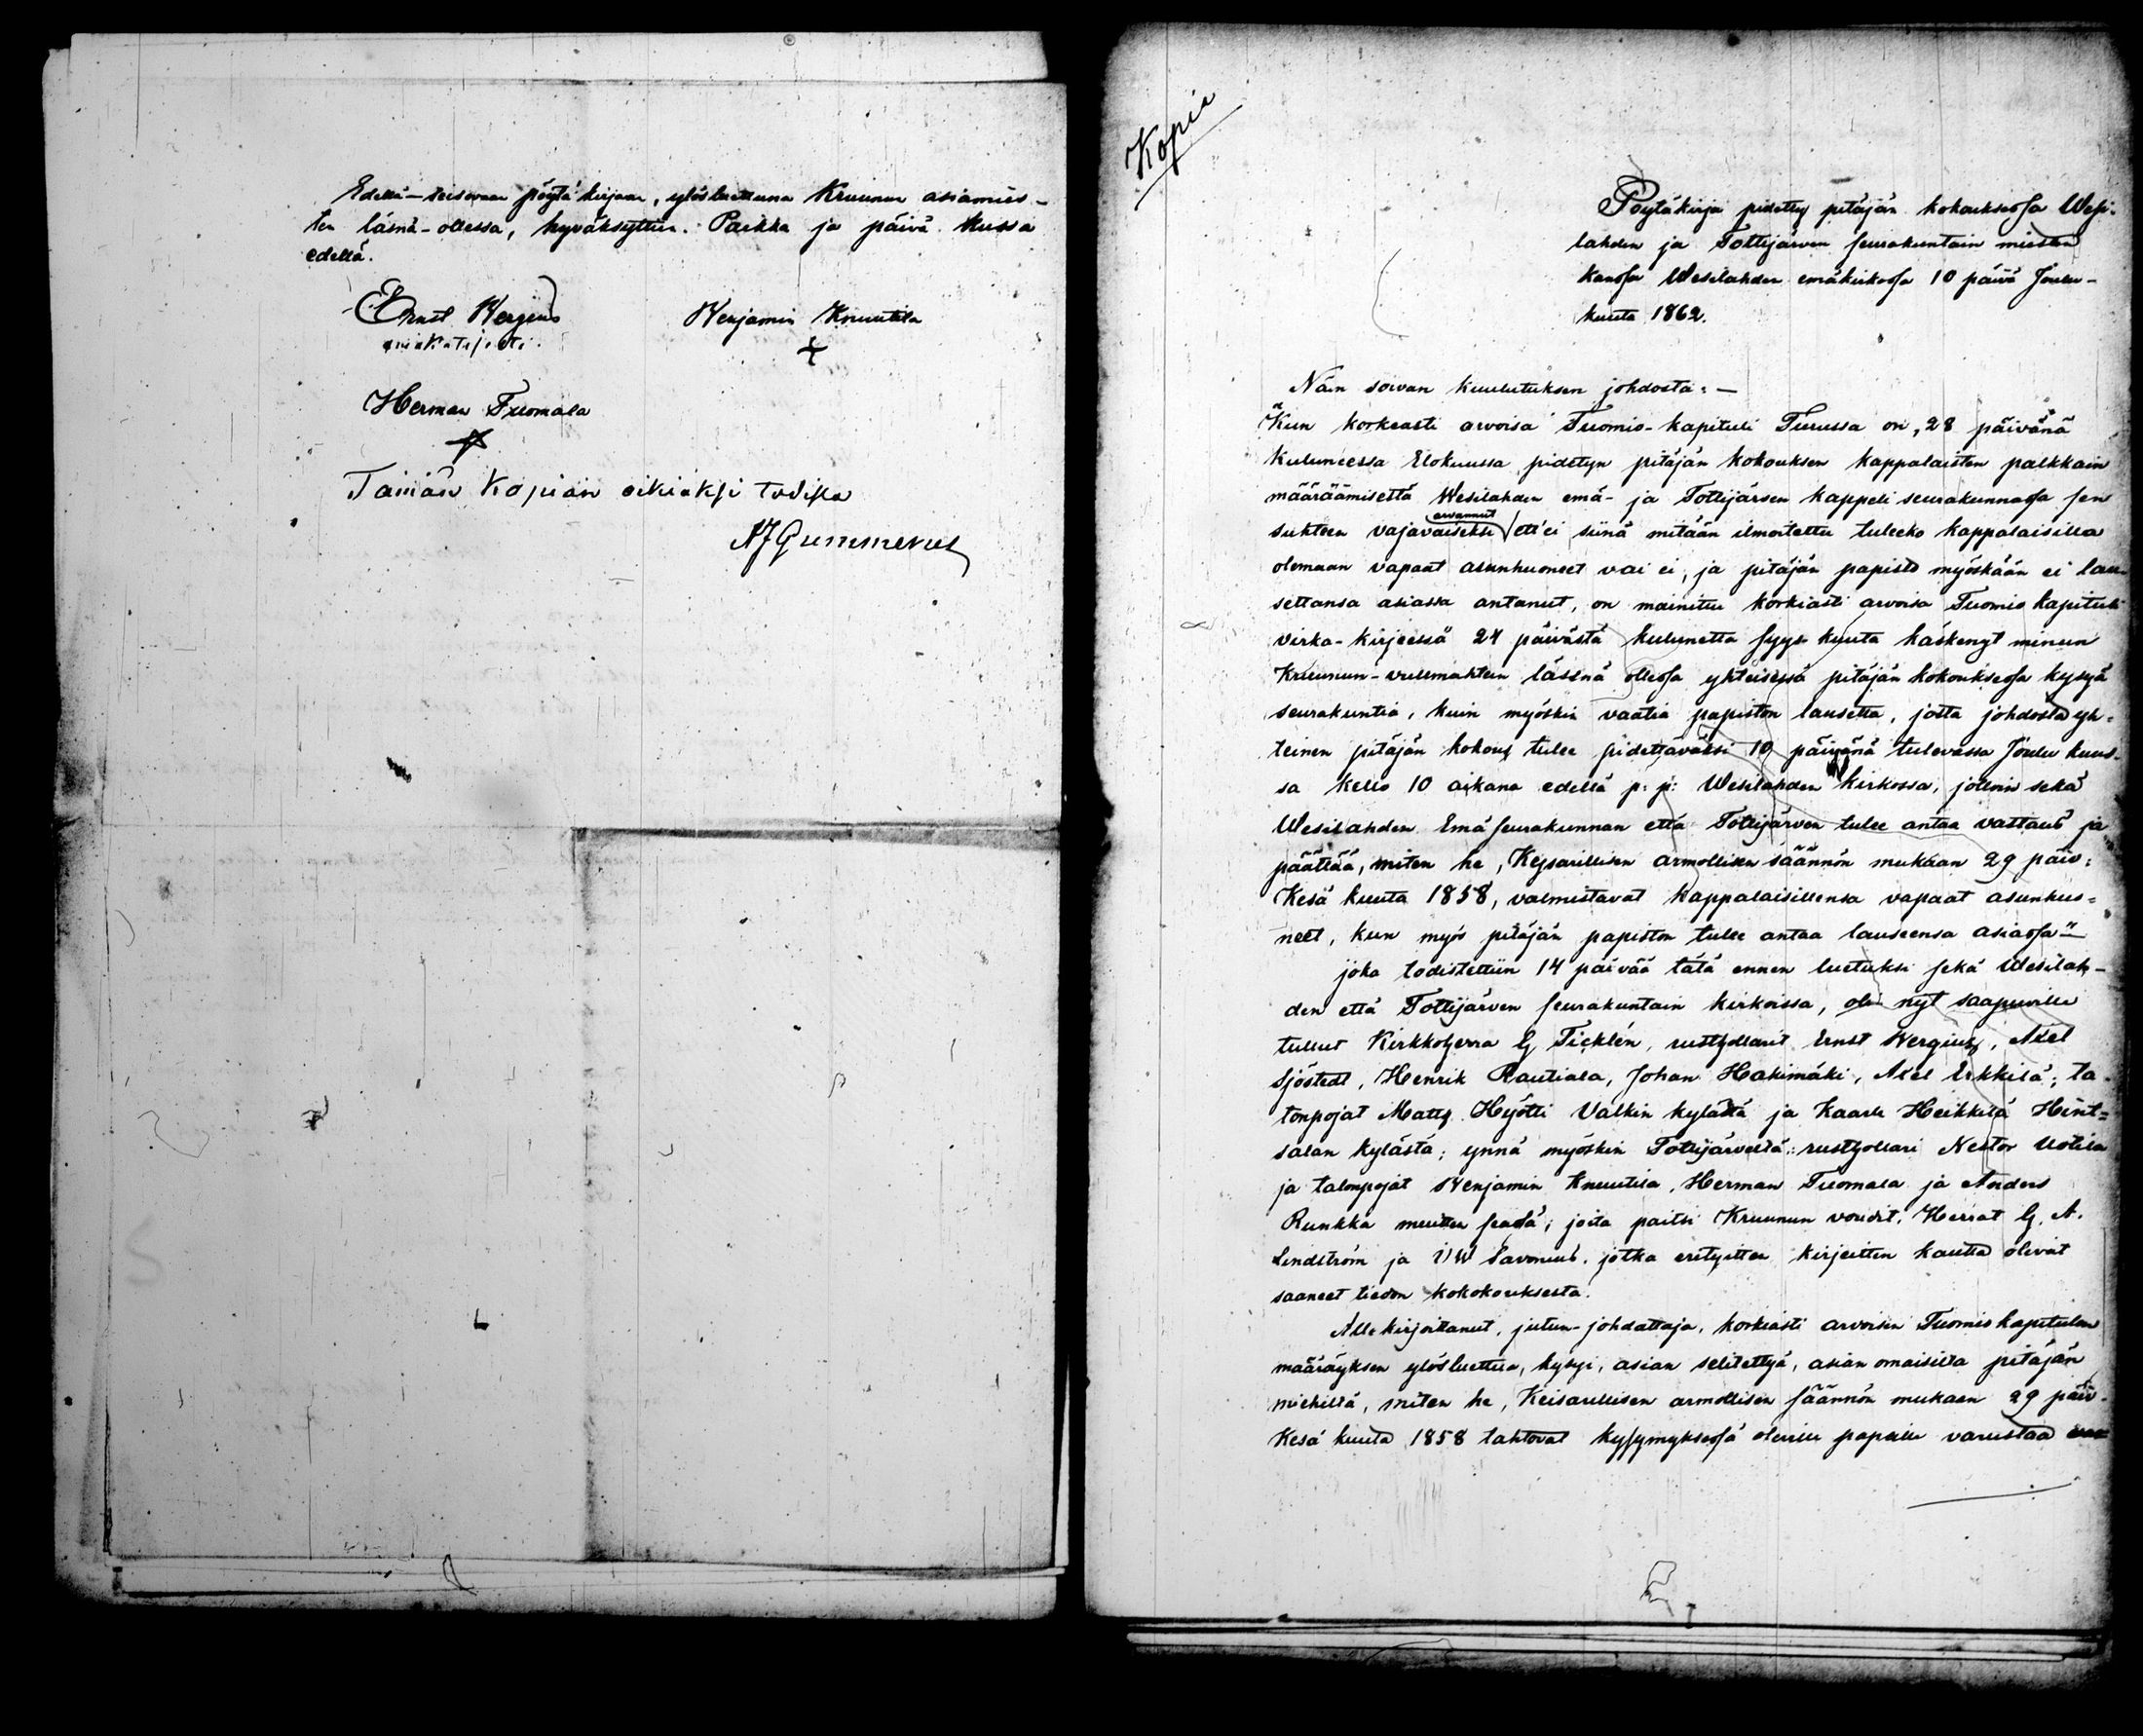 Edellä-seisovan pöytä kirjan, ylösluettuna Kruunun asiamies-
ten läsnä-ollessa, hyväksyttiin. Paikka ja päivä kussa
edellä.
Ernst Bergius
Benjamin Knuutila
Herman Tuomala
Tämän Kopian oikiaksi todistaa
AJGummerus
Kopia
Pöytäkirja pidetty pitäjän kokouksessa Wesi-
lahden ja Tottijärven seurakuntain miesten
kanssa Wesilahden emäkirkossa 10 päivä Joulu-
kuuta 1862.
Näin soivan kuulutuksen johdosta: —
"Kun korkeasti arvoisa Tuomio-kapituli Turussa on, 28 päivänä
kuluneessa Elokuussa pidetyn pitäjän kokouksen kappalaisten palkkain
määräämisestä Wesilahden emä- ja Tottijärven kappeli seurakunnassa sen
arvannut
suhteen vajavaiseksi ett'ei siinä mitään ilmoitettu tuleeko kappalaisilla
olemaan vapaat asunhuoneet vai ei, ja pitäjän papisto myöskään ei lau-
settansa asiassa antanut, on mainittu korkiasti arvoisa Tuomio kapituli
virka-kirjeessä 24 päivästä kulunetta syys kuuta käskenyt minun
Kruunun-vullmahtein läsnä ollessa yhteisessä pitäjän kokouksessa kysyä
seurakuntia, kuin myöskin vaatia papiston lausetta, josta johdosta yh-
teinen pitäjän kokous tulee pidettäväksi 10 päivänä tulevassa Joulu kuus-
sa kello 10 aikana edellä p: p: Wesilahden kirkossa, jolloin sekä
Wesilahden Emä seurakunnan että Tottijärven tulee antaa vastaus ja
päättää, miten he, Kejsarillisen armollisen säännön mukaan 29 päiv:
Kesä kuuta 1858, valmistavat kappalaisillensa vapaat asunhuo-
neet, kun myös pitäjän papiston tulee antaa lauseensa asiassa"
joka todistettiin 14 päivää tätä ennen luetuksi sekä Wesilah-
den että Tottijärven seurakuntain kirkoissa, oli nyt saapuville
tullut Kirkkoherra G Ticklén, rustholларit Ernst Bergius, Axel
Sjöstedt, Henrik Rautiala, Johan Hakimäki, Axel Erkkilä; ta-
lonpojat Matts Hyötti Valkin kylästä ja Kaarle Heikkilä Hint-
salan kylästä; ynnä myöskin Tottijärveltä: rusthollari Nestor Uotila
ja talonpojat Benjamin Knuutila, Herman Tuomala ja Anders
Runkka muitten seassa; joita paitsi Kruunun voudit, Herrat G. A.
Lindström ja Savonius, jotka erityitten kirjeitten kautta olivat
saaneet tiedon kokokouksesta.
Alle kirjoittanut, jutun-johdattaja, korkiasti arvoisen Tuomiokapitulin
määräyksen ylösluettua, kysyi, asian selitettyä, asian omaisilta pitäjän
miehiltä, miten he, Keisarillisen armollisen säännön mukaan 29 päiv-
Kesä kuuta 1858 tahtovat kysymyksessä oleville papeille varustaa